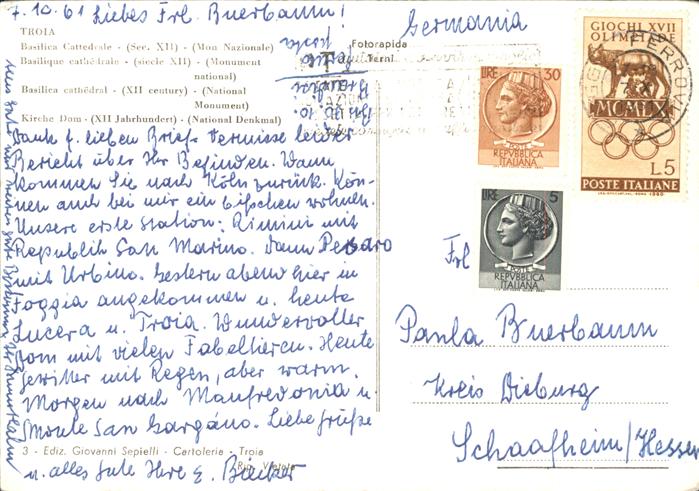 7.10.61 Liebes Frl. Buerbaum!
Germania
TROIA
Basilica Cattedrale - (Sec. XII) - (Mon Nazionale)
Basilique cathédrale - (siecle XII) - (Monument
national)
Basilica cathédral - (XII century) - (National
Monument)
Kirche Dom - (XII Jahrhundert) - (National Denkmal)
Fotorapida
Terni
Dank f. lieben Brief. Vermisse leider
Bericht über Ihr Befinden. Wann
kommen Sie nach Köln zurück. Kön-
nen auch bei mir ein bißchen wohnen.
Unsere erste Station: Rimini mit
Republik San Marino. Dann Pesaro
mit Urbino. Gestern abend hier in
Foggia angekommen u. heute
Lucera u. Troia. Wundervoller
Dom mit vielen Fabeltieren. Heute
Gewitter mit Regen, aber warm.
Morgen nach Manfredonia u.
Monte San Gargáno. Liebe Grüße
3 - Ediz. Giovanni Sepielli - Cartolerie - Troia
Rip. Vietata
u. alles Gute Ihre E. Bäcker
LIRE 30
POSTE
REPVBBLICA
ITALIANA
LIRE 5
POSTE
REPVBBLICA
ITALIANA
GIOCHI XVII
OLIMPIADE
MCMLX
L5
POSTE ITALIANE
Frl
Paula Buerbaum
Kreis Dieburg
Schaafheim/Hessen